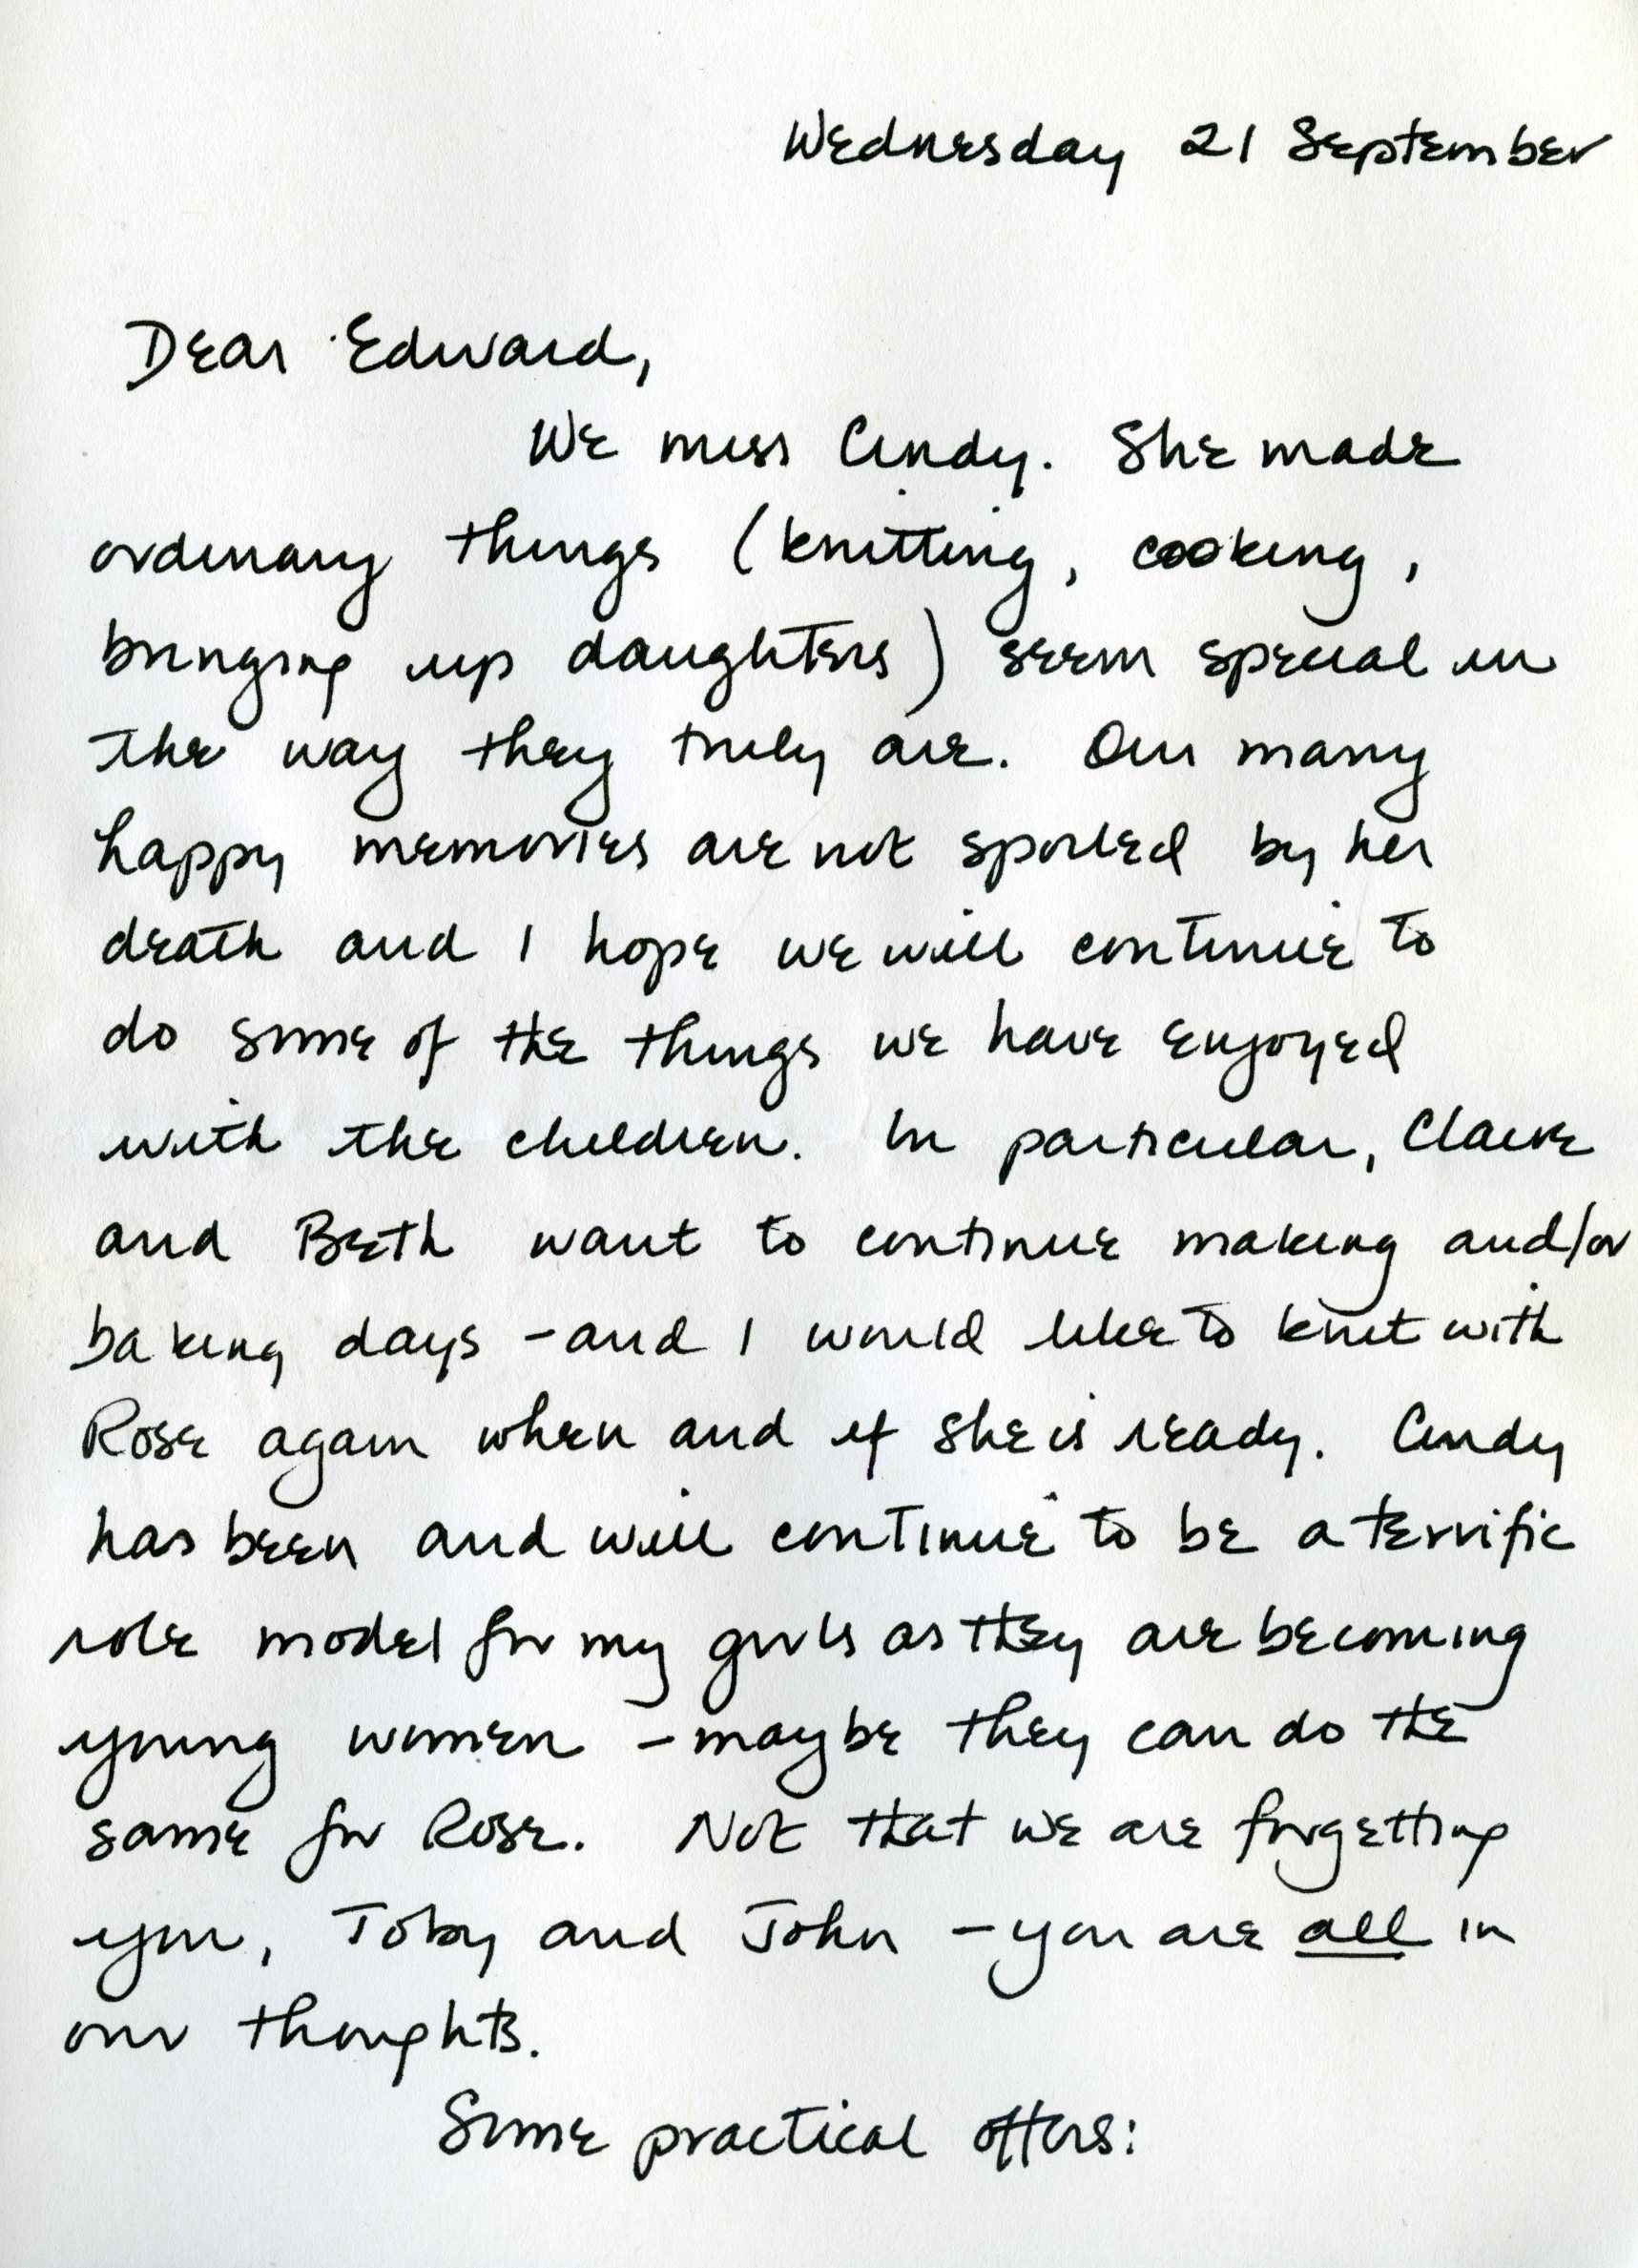 Wednesday 21 September
Dear Edward,
We miss Cindy. She made
ordinary things (knitting, cooking,
bringing up daughters) seem special in
the way they truly are. Our many
happy memories are not spoiled by her
death and I hope we will continue to
do some of the things we have enjoyed
with the children. In particular, Claire
and Beth want to continue making and/or
baking days - and I would like to knit with
Rose again when and if she is ready. Cindy
has been and will continue to be a terrific
role model for my girls as they are becoming
young women - maybe they can do the
same for Rose. Not that we are forgetting
you, Toby and John - you are all in
our thoughts.
Some practical offers: